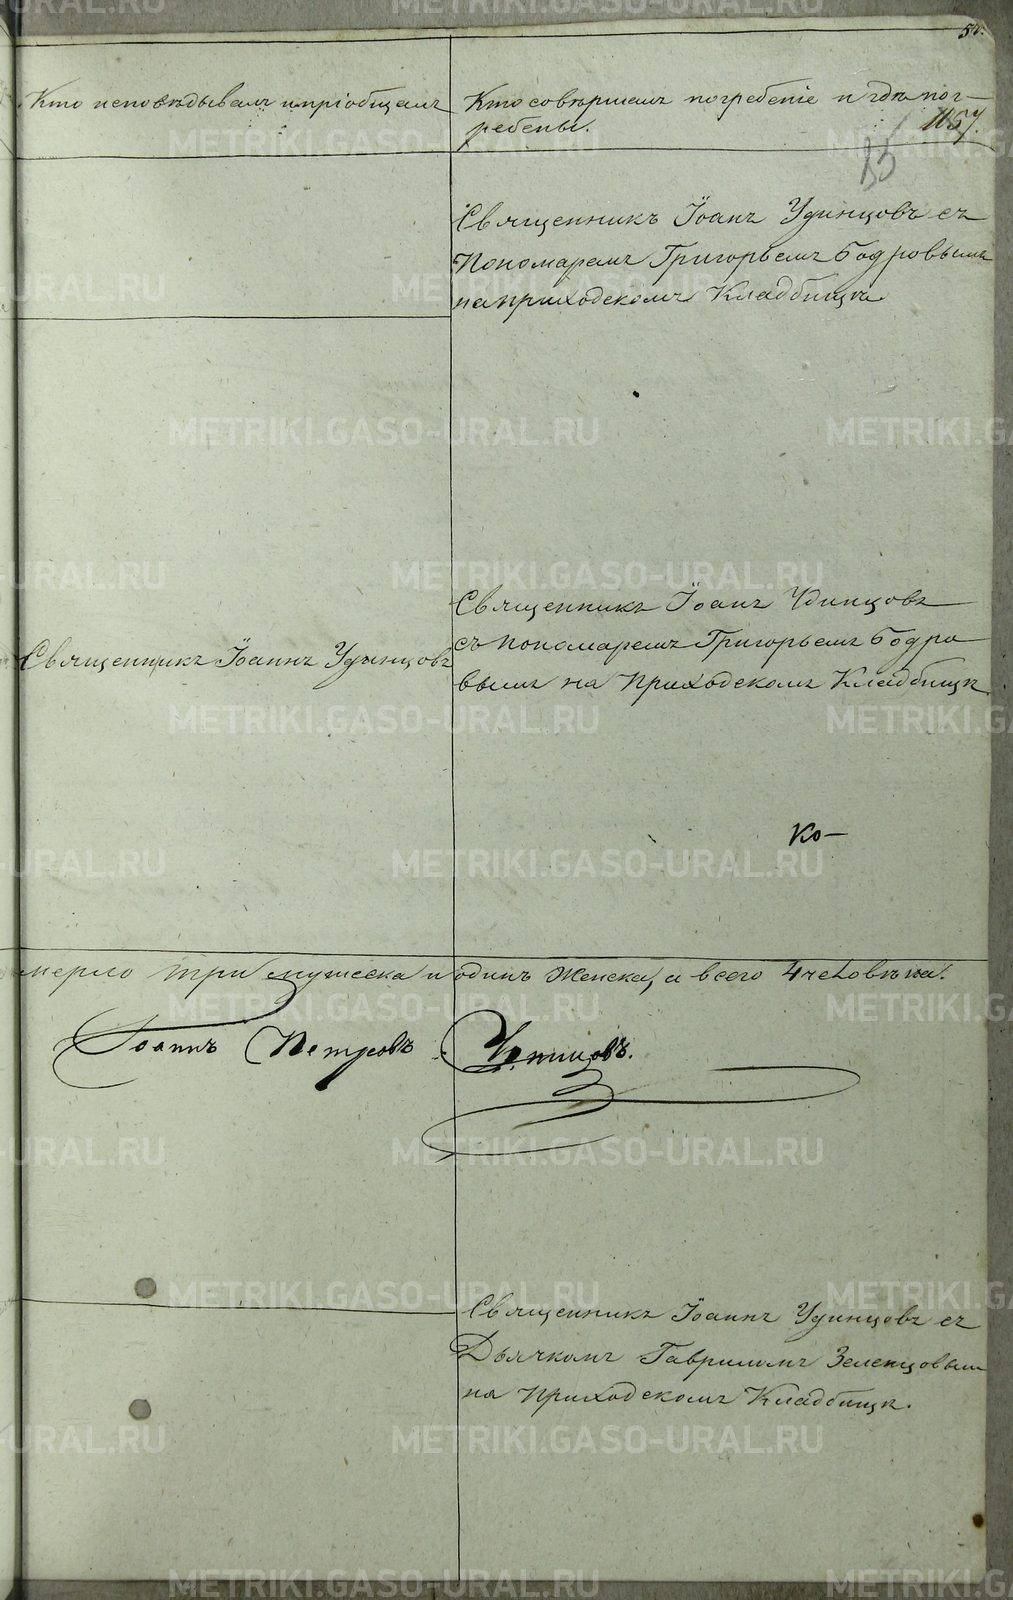 54.
Кто исповѣдывалъ и пріобщалъ
Кто совершалъ погребеніе и гдѣ пог-
ребены.
1157.
85
Священникъ Іоанъ Удинцовъ съ
Пономаремъ Григорьемъ Бодровымъ
на приходскомъ Кладбищѣ
Священникъ Іоаннъ Удинцовъ
Священникъ Іоанъ Удинцовъ
съ пономаремъ Григорьемъ Бодро
вымъ на Приходскомъ Кладбищѣ
Ко—
мерло три мужеска и одинъ Женска, а всего 4 человѣка.
Іоаннъ Петровъ
Священникъ Іоаннъ Удинцовъ съ
Дьячкомъ Гавриломъ Зеленцовым
на Приходскомъ Кладбищѣ.
METRIKI.GASO-URAL.RU